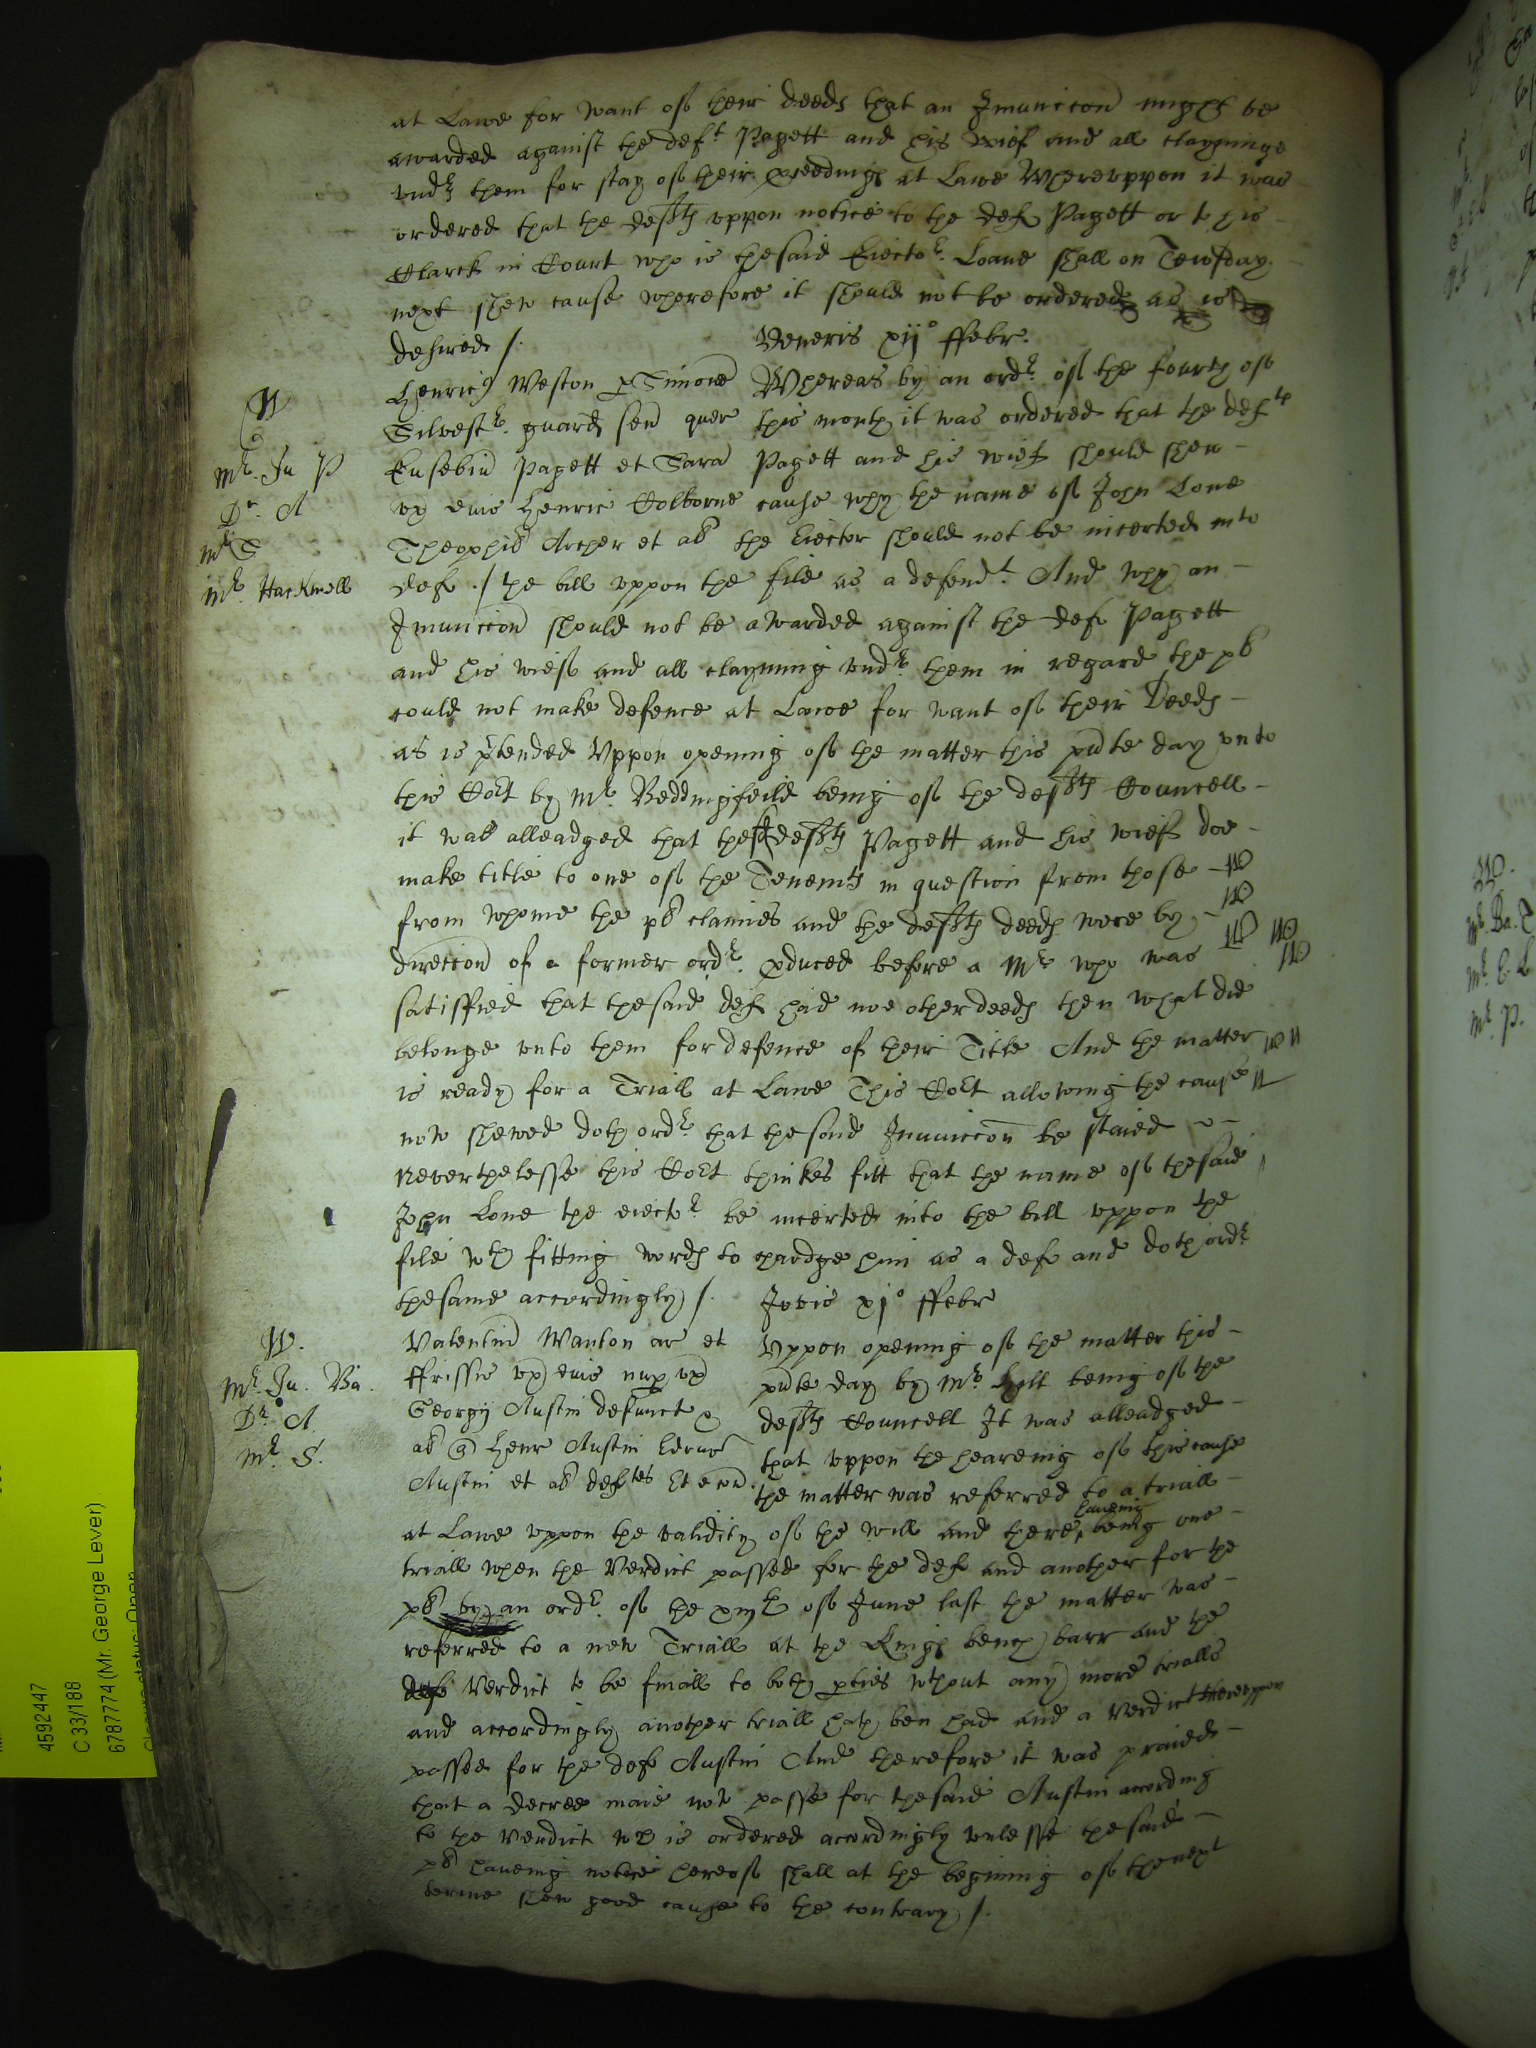 at Lawe for want of their deeds that an Iniunccon might be
awarded against the deft Pagett and his wief and all clayminge
vndr them for stay of their proceedings at Lawe Wherevppon it was
ordered that the defts vppon notice to the def Pagett or to his
Clarck in Court who is the said Eiector Loane shall on Tewsday
next shew cause wherefore it should not be ordered as is
desired /.
Veneris xij° ffebr.
W
Henric Weston p Simone
Silvestr. guard sen quer
Eusebiu Pagett et Sara
vx eius Henric Colborne
Theophil Archer et al
def ./
Mr. Ju P
Dr. A
Mr S
Mr. Hackwell
Whereas by an ordr. of the fourth of
this month it was ordered that the defts
Pagett and his wief should shew
cause why the name of John Lone
the Eiector should not be incerted into
the bill vppon the file as a defendt. And why an
Iniunccon should not be awarded against the def Pagett
and his wief and all clayming vndr. them in regard the pl
could not make defence at Lawe for want of their Deeds
as is ptended Vppon opening of the matter this pnte day vnto
this Cort by Mr. Beddingfeild being of the defts Councell
it was alleadged that the defts Pagett and his wief doe
make title to one of the Tenemts in question from those
from whome the pl claimes and the defts deeds were by
direccon of a former ordr. pduced before a Mr who was
satisfied that the said def had noe other deeds then what did
belonge vnto them for defence of their Title And the matter
is ready for a Triall at Lawe This Cort allowing the cause
now shewed doth ordr. that the said Iniunccon be staied
Neverthelesse this Cort thinkes fitt that the name of the said
John Lone the eiector be incerted into the bill vppon the
file wth fitting words to chardge him as a def and doth ordr
the same accordingly /.
Jovis xj° ffebr
W.
Mr. Ju. Ba.
Dr. A
Mr. S.
Valentin Wanton ar et
ffrissis vx eius nup vx
Georgij Austin defunct
al Henr Austin
Austin et al deftes Et econ
Vppon opening of the matter this
pnte day by Mr. Hill being of the
defts Councell It was alleadged
that vppon the heareing of this cause
the matter was referred to a triall
at Lawe vppon the validity of the will and there haveing being one
triall when the Verdict passed for the def and another for the
pl by an ordr. of the xiijth of June last the matter was
referred to a new Triall at the Kings bench barr and the
Verdict to be finall to both pties wthout any more trialls
and accordingly another triall hath ben had and a verdict therevppon
passed for the def Austin And therefore it was praied
that a decree maie now passe for the said Austin according
to the Verdict wch is ordered accordingly vnlesse the said
pl haueing notice hereof shall at the begining of the next
terme shew good cause to the contrary /.
4592447
C 33/188
6787774 (Mr. George Lever)
Closure status: Open